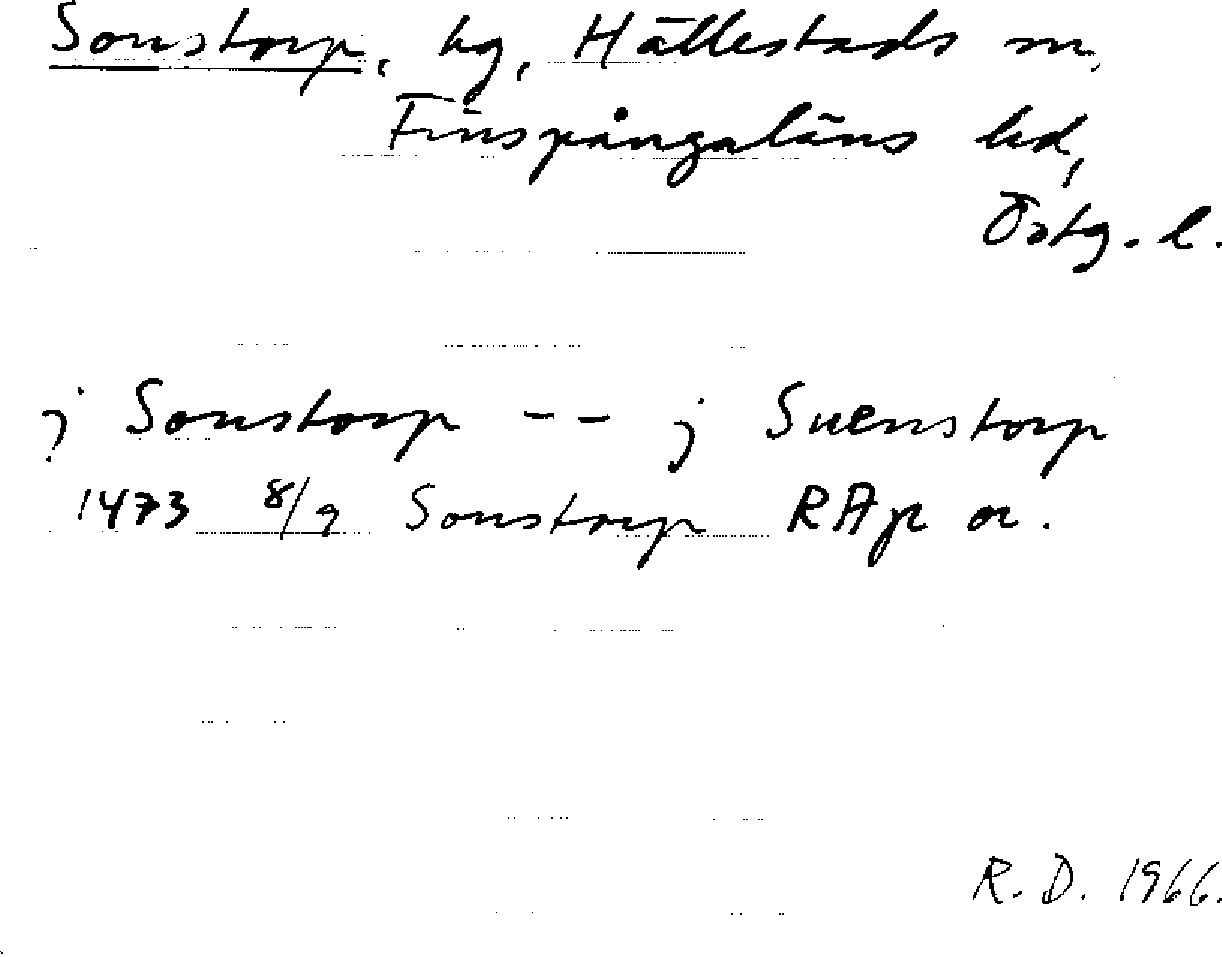 Sonstorp, hg, Hällestads sn,
Finspångaläns hd,
Östg. l.
j Sonstorp -- j Suenstorp
1473 8/9 Sonstorp RAp or.
R. D. 1966.